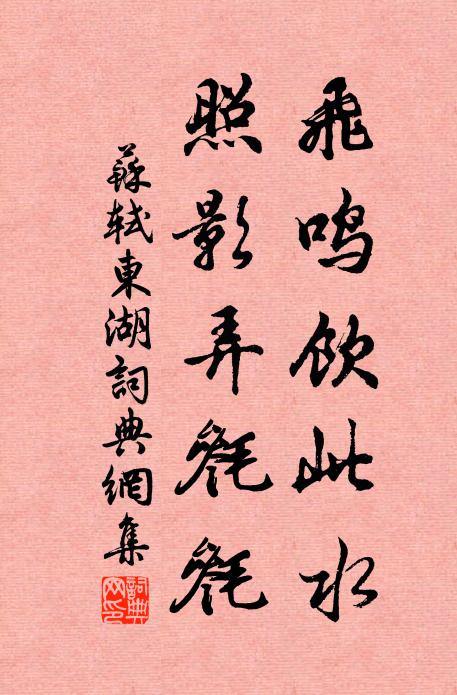 飛鳴飲此水
照影弄毿毿
蘇軾東湖詞典網集
詞典网印